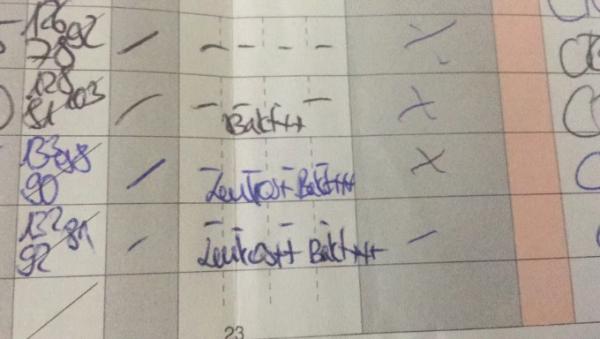 126 92
78
128 103
81
Bakt++
133 98
90
Leukos+ Bakt+++
132 91
92
Leukos++ Bakt+++
23